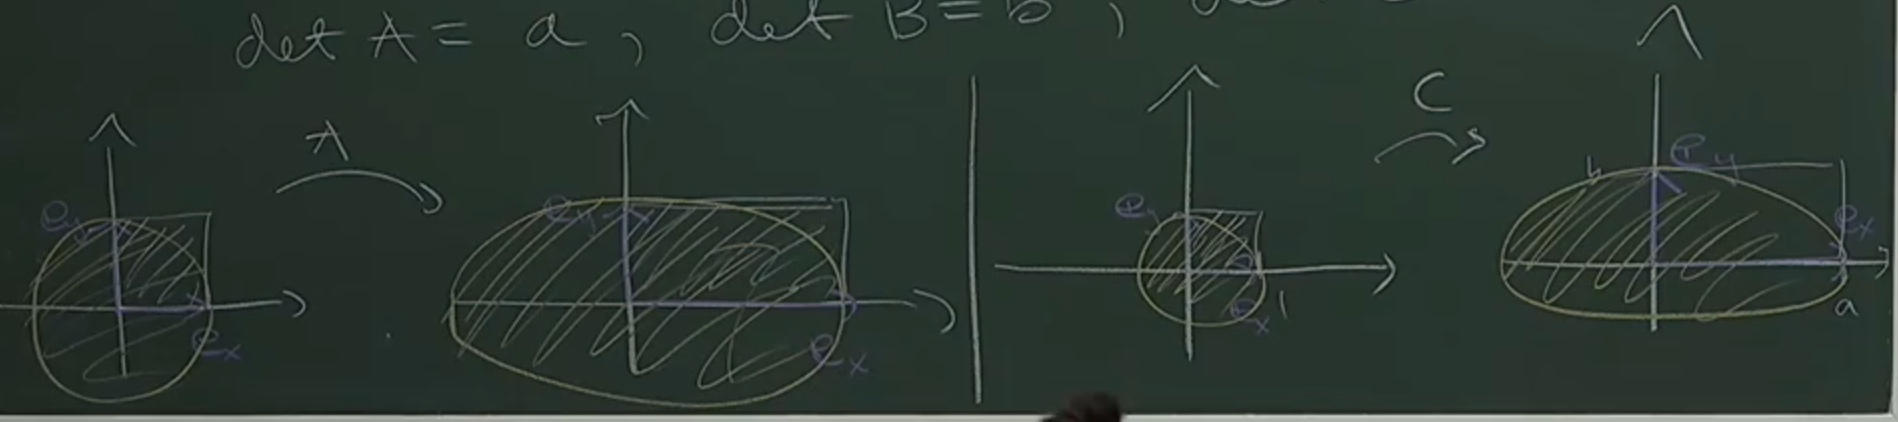 det A = a, det B = b,
A
C
e_y
e_x
e_y
e_x
e_y
e_x
1
b
e_y
e_x
a